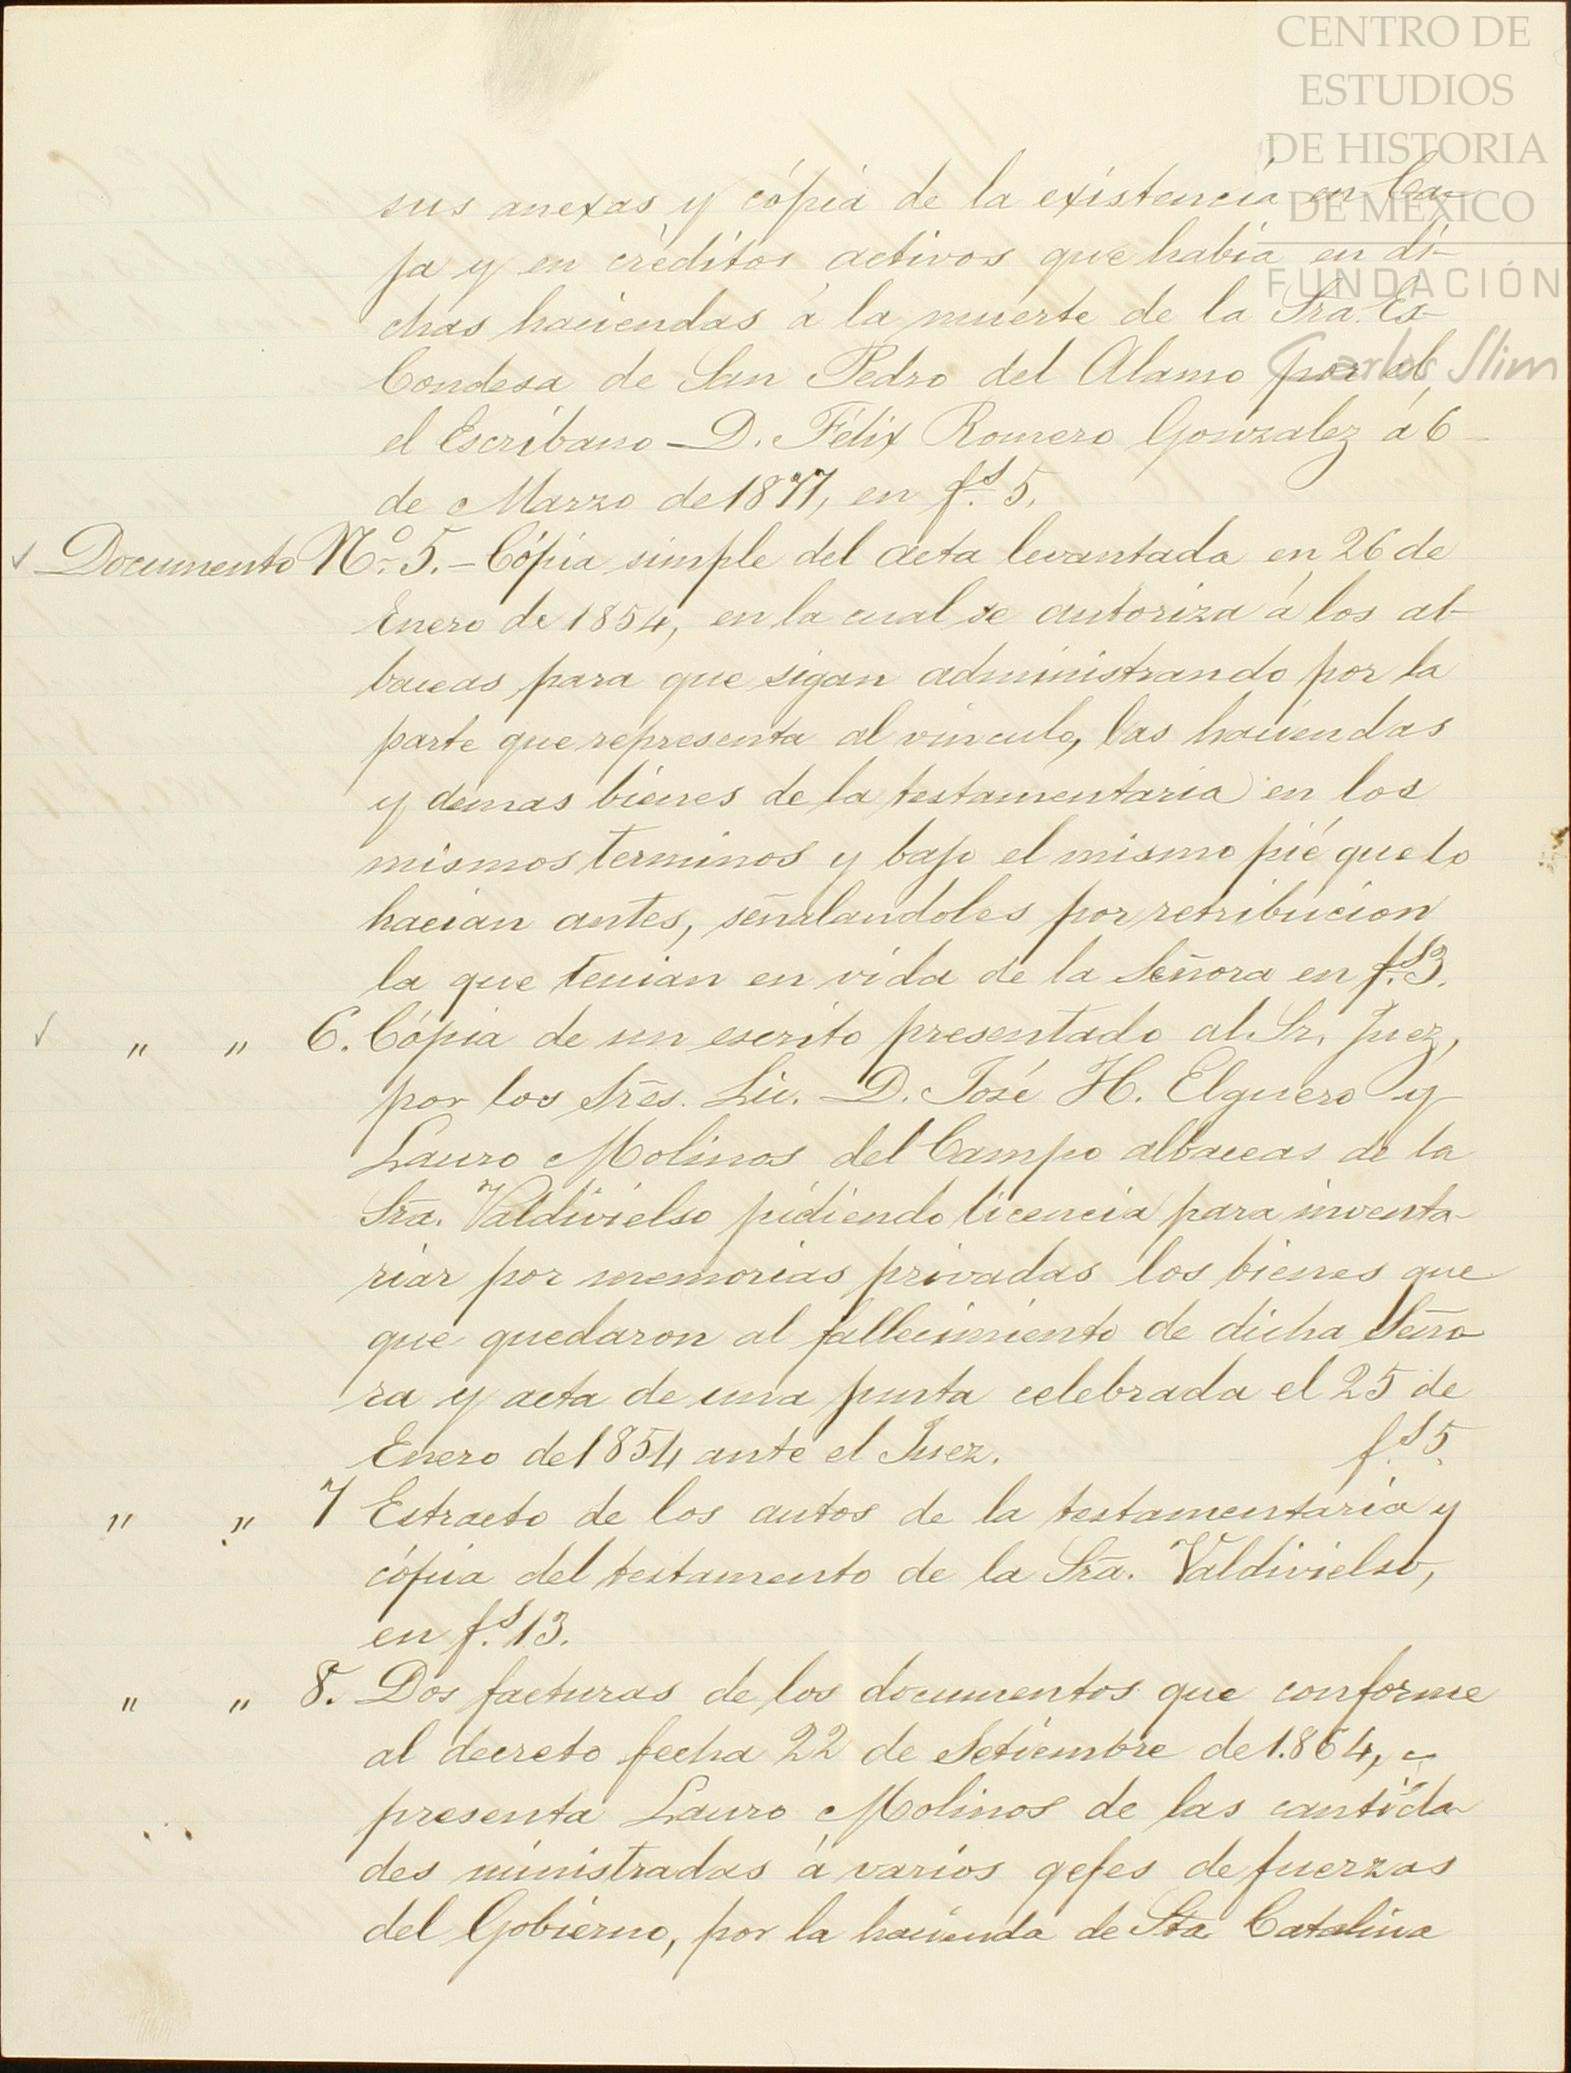 CENTRO DE
ESTUDIOS
DE HISTORIA
DE MÉXICO
FUNDACIÓN
Carlos Slim
sus anexas y cópia de la existencia en Ca-
ja y en créditos activos que habia en di-
chas haciendas á la muerte de la Sra. Es-
Condesa de San Pedro del Alamo por el,
el Escribano D. Félix Romero Gonzalez á 6
de Marzo de 1877, en f.s 5.
Documento No. 5. - Cópia simple del acta levantada en 26 de
Enero de 1854, en la cual se autoriza á los al-
baceas para que sigan administrando por la
parte que representa al vinculo, las haciendas
y demas bienes de la testamentaria en los
mismos terminos y bajo el mismo pié que lo
hacian antes, señalandoles por retribucion
la que tenian en vida de la Señora en f.s 3.
" " 6. Cópia de un escrito presentado al Sr. Juez,
por los Sres. Lic. D. José H. Elguero y
Lauro Molinos del Campo albaceas de la
Sra. Valdivielso pidiendo licencia para inventa-
riar por memorias privadas los bienes que
que quedaron al fallecimiento de dicha Seño-
ra y acta de una junta celebrada el 25 de
Enero de 1854 ante el Juez. f.s 5.
" " 7 Estracto de los autos de la testamentaria y
cópia del testamento de la Sra. Valdivielso,
en f.s 13.
" " 8. Dos facturas de los documentos que conforme
al decreto fecha 22 de Setiembre de 1.864,
presenta Lauro Molinos de las cantida-
des ministradas á varios gefes de fuerzas
del Gobierno, por la hacienda de Sta Catalina